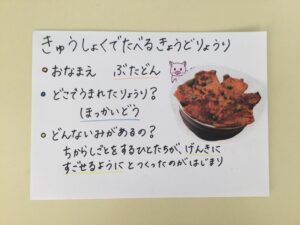 きゅうしょくでたべるきょうどりょうり
おなまえ ぶたどん
どこでうまれたりょうり?
ほっかいどう
どんないみがあるの?
ちからしごとをするひとたちが、げんきに
すごせるようにとつくったのがはじまり